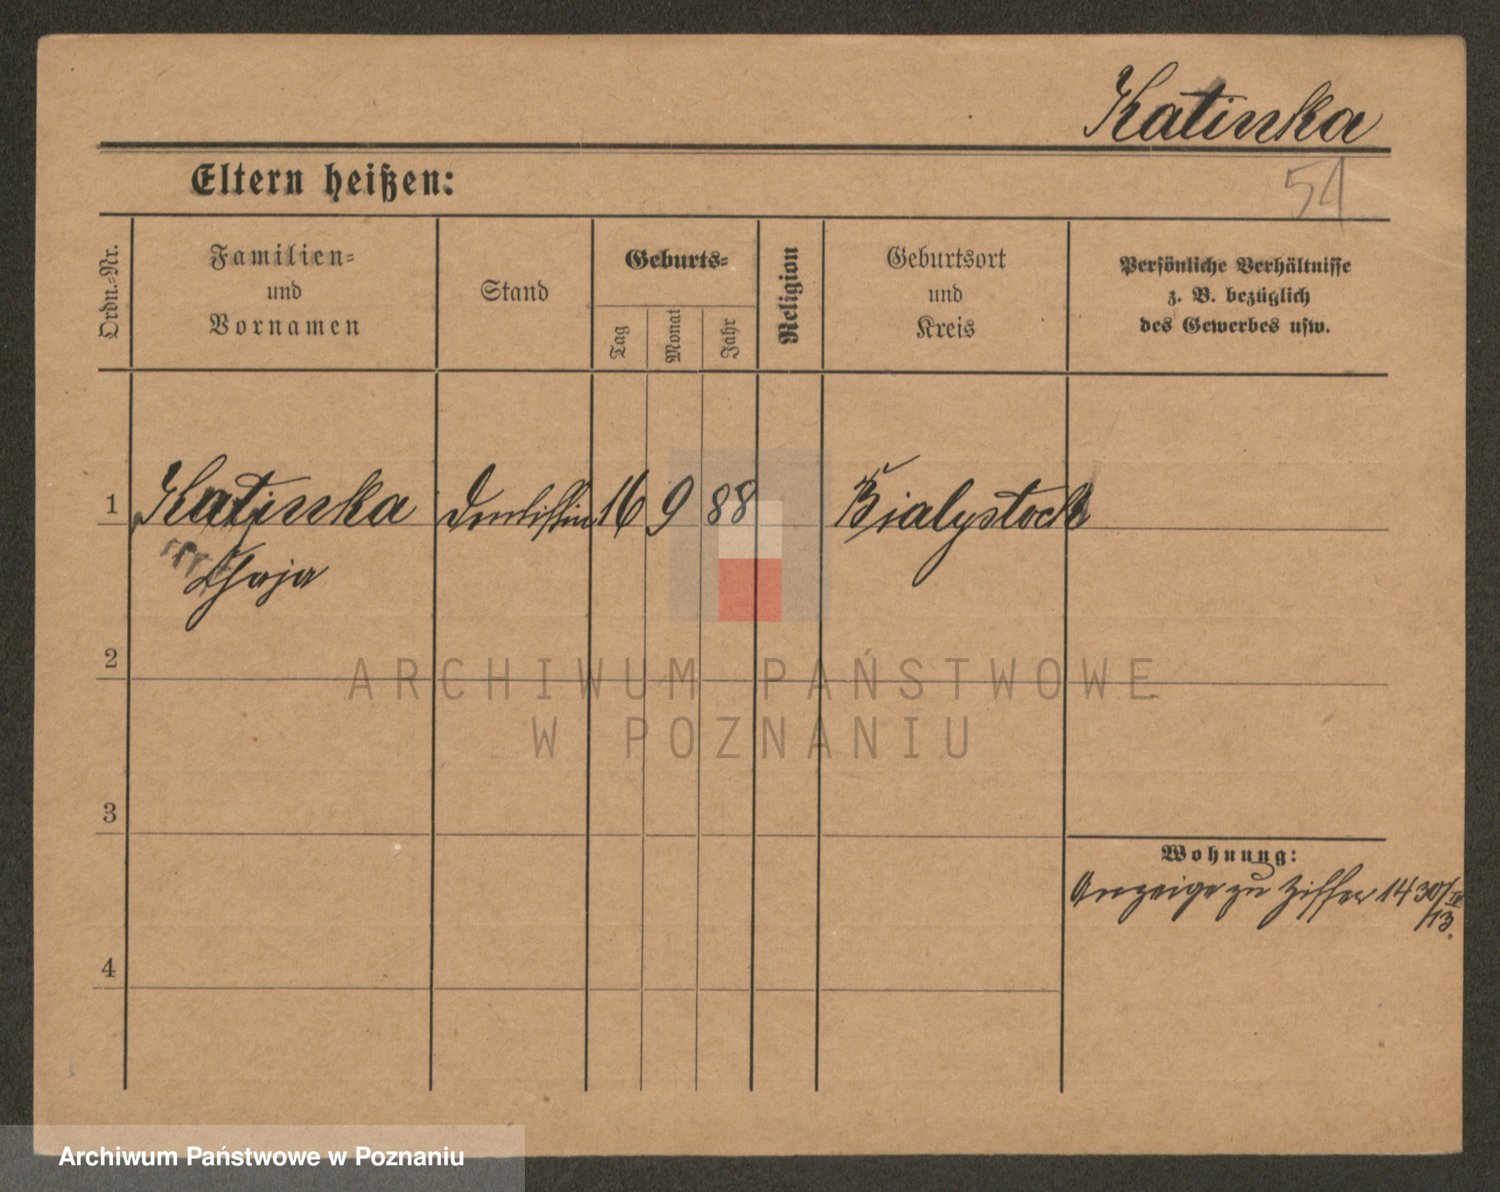 Katinka
51
Eltern heißen:
Ordn.-Nr.
Familien-
und
Vornamen
Stand
Geburts-
Tag
Monat
Jahr
Religion
Geburtsort
und
Kreis
Persönliche Verhältnisse
z. B. bezüglich
des Gewerbes usw.
1 Katinka Dentistin 16 9 88 Bialystock
Chaja
2
ARCHIWUM PAŃSTWOWE
W POZNANIU
3
Wohnung:
Anzeige zu Ziffer 14 30/IV
/13.
4
Archiwum Państwowe w Poznaniu